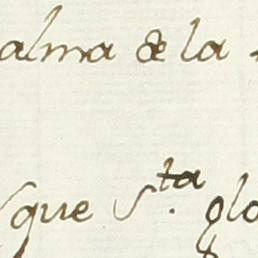 alma de la
que S.ta glo